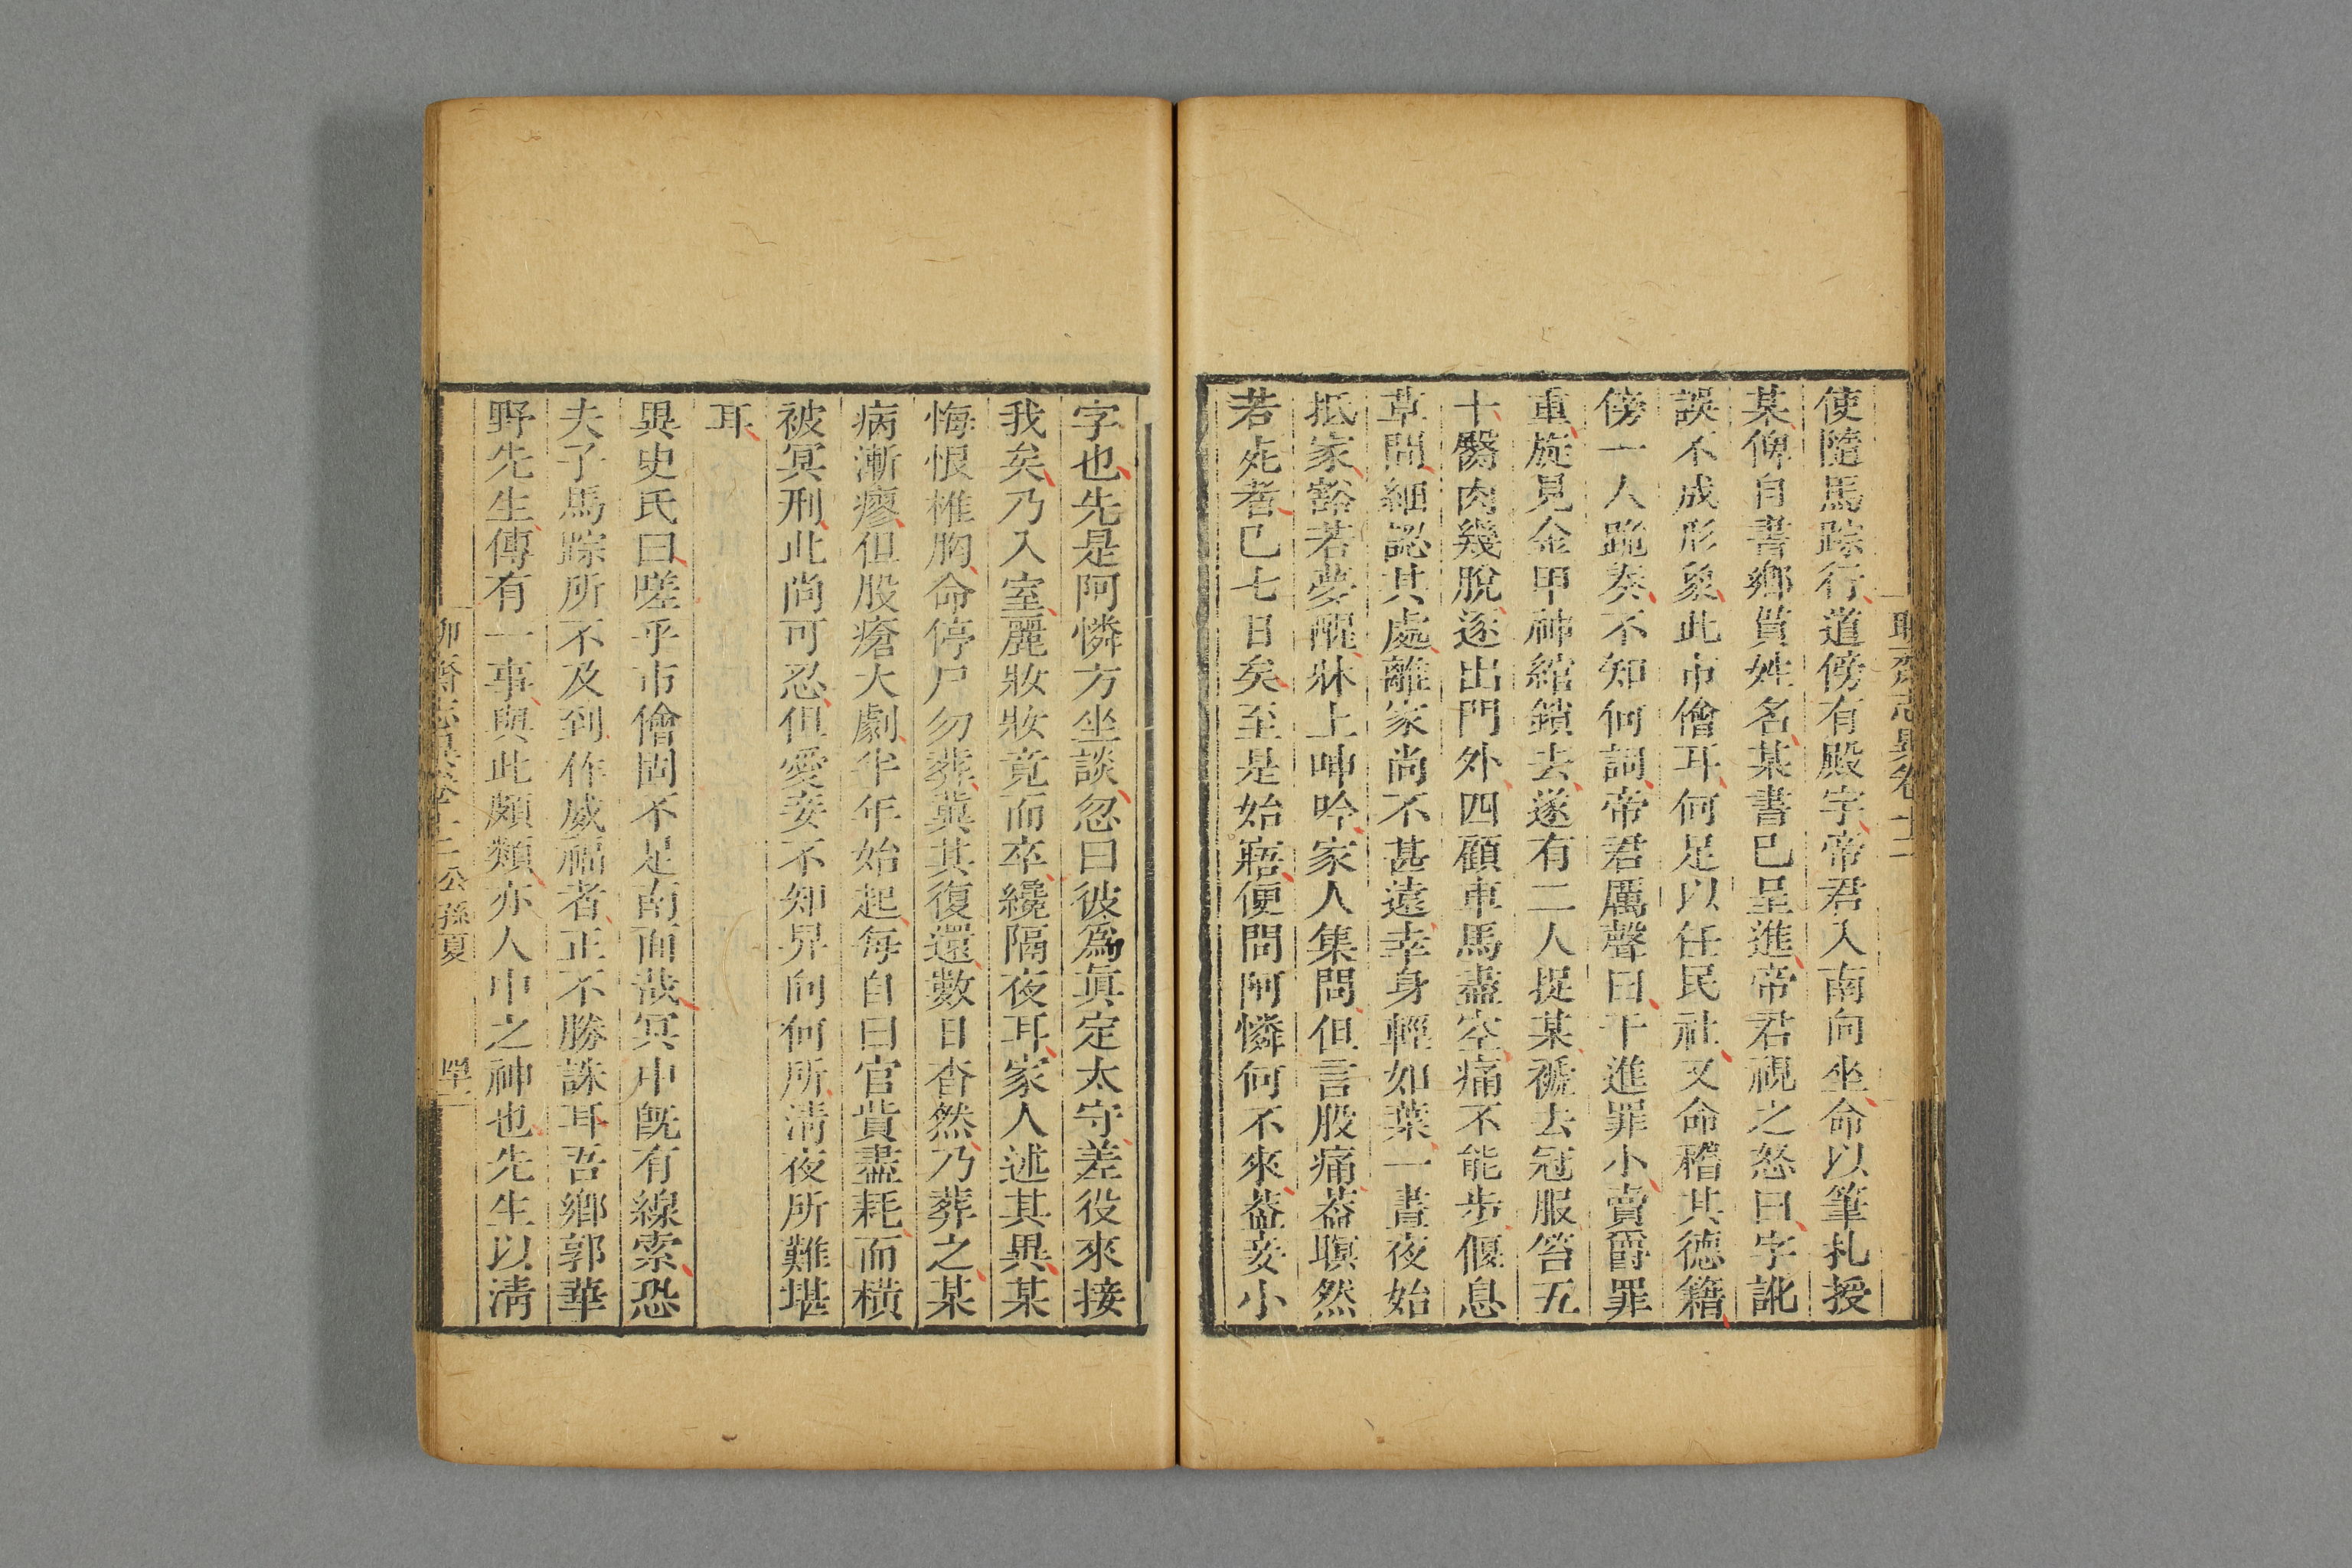 聊齋志異卷十二
使隨馬踪行道傍有殿宇帝君入南向坐命以筆札授
某俾自書鄉貫姓名某書已呈進帝君視之怒曰字訛
誤不成形象此市儈耳何足以任民社又命稽其德籍
傍一人跪奏不知何詞帝君厲聲曰干進罪小賣爵罪
重旋見金甲神綰鎖去遂有二人捉某褫去冠服笞五
十臀肉幾脫逐出門外四顧車馬盡空痛不能步偃息
草間細認其處離家尚不甚遠幸身輕如葉一晝夜始
抵家豁若夢醒牀上呻吟家人集問但言股痛葢瞑然
若死者已七日矣至是始寤便問阿憐何不來葢妾小
字也先是阿憐方坐談忽曰彼爲眞定太守差役來接
我矣乃入室麗妝妝竟而卒纔隔夜耳家人述其異某
悔恨椎胸命停尸勿葬冀其復還數日杳然乃葬之某
病漸瘳但股瘡大劇半年始起每自曰官貲盡耗而橫
被冥刑此尚可忍但愛妾不知舁向何所淸夜所難堪
耳
異史氏曰嗟乎市儈固不足南面哉冥中旣有線索恐
夫子馬踪所不及到作威福者正不勝誅耳吾鄉郭華
野先生傳有一事與此頗類亦人中之神也先生以淸
聊齋志異卷十二 公孫夏